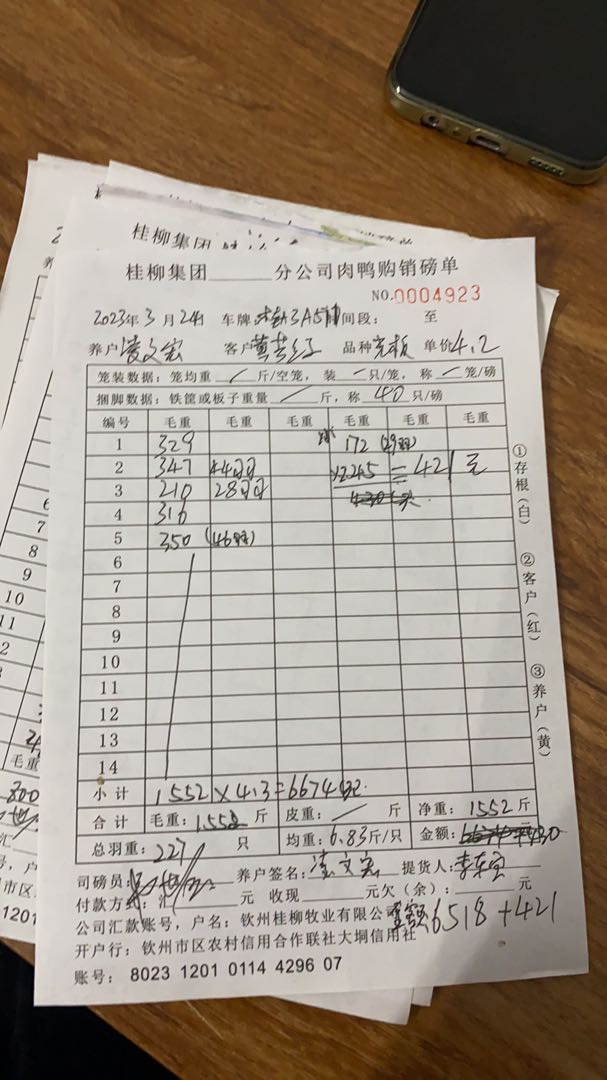 桂柳集团
桂柳集团______分公司肉鸭购销磅单
NO.0004923
2023年3月24日 车牌: 时间段: 至
养户 凌文宏 客户 品种 单价4.2
笼装数据: 笼均重 / 斤/空笼, 装 - 只/笼, 称 - 笼/磅
捆脚数据: 铁筐或板子重量 / 斤, 称 40 只/磅
编号 毛重 毛重 毛重 毛重 毛重 毛重
1 329 172 (29
2 347 44 ×2.45 = 421元
3 210 28
4 316
5 350 (46
6
7
8
9
10
11
12
13
14
小计 1552 × 4.3 = 6674
合计 毛重: 1552 斤 皮重: / 斤 净重: 1552 斤
总羽重: 227 只 均重: 6.83斤/只 金额:
司磅员: 养户签名: 凌文宏 提货人:
付款方式: 汇 元 收现 元欠(余): 元
公司汇款账号, 户名: 钦州桂柳牧业有限公司
6518+421
开户行: 钦州市区农村信用合作联社大垌信用社
账号: 8023 1201 0114 4296 07
①存根(白)
②客户(红)
③养户(黄)